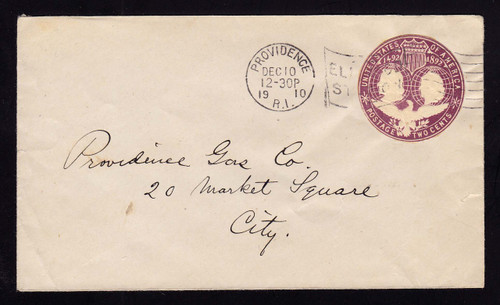 PROVIDENCE
DEC 10
12-30P
19 10
R.I.
UNITED STATES OF AMERICA
1492 1892
POSTAGE TWO CENTS
Providence Gas Co.
20 Market Square
City.